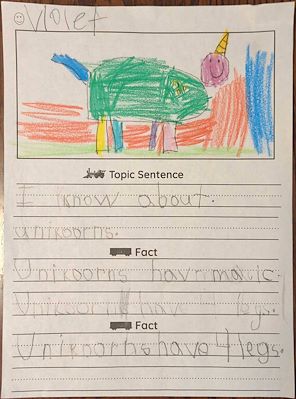 Violet
Topic Sentence
I know about.
unikoorns.
Fact
Unikoorns hav matic.
Unikoorns have legs.
Fact
Unikoorns have 4 legs.